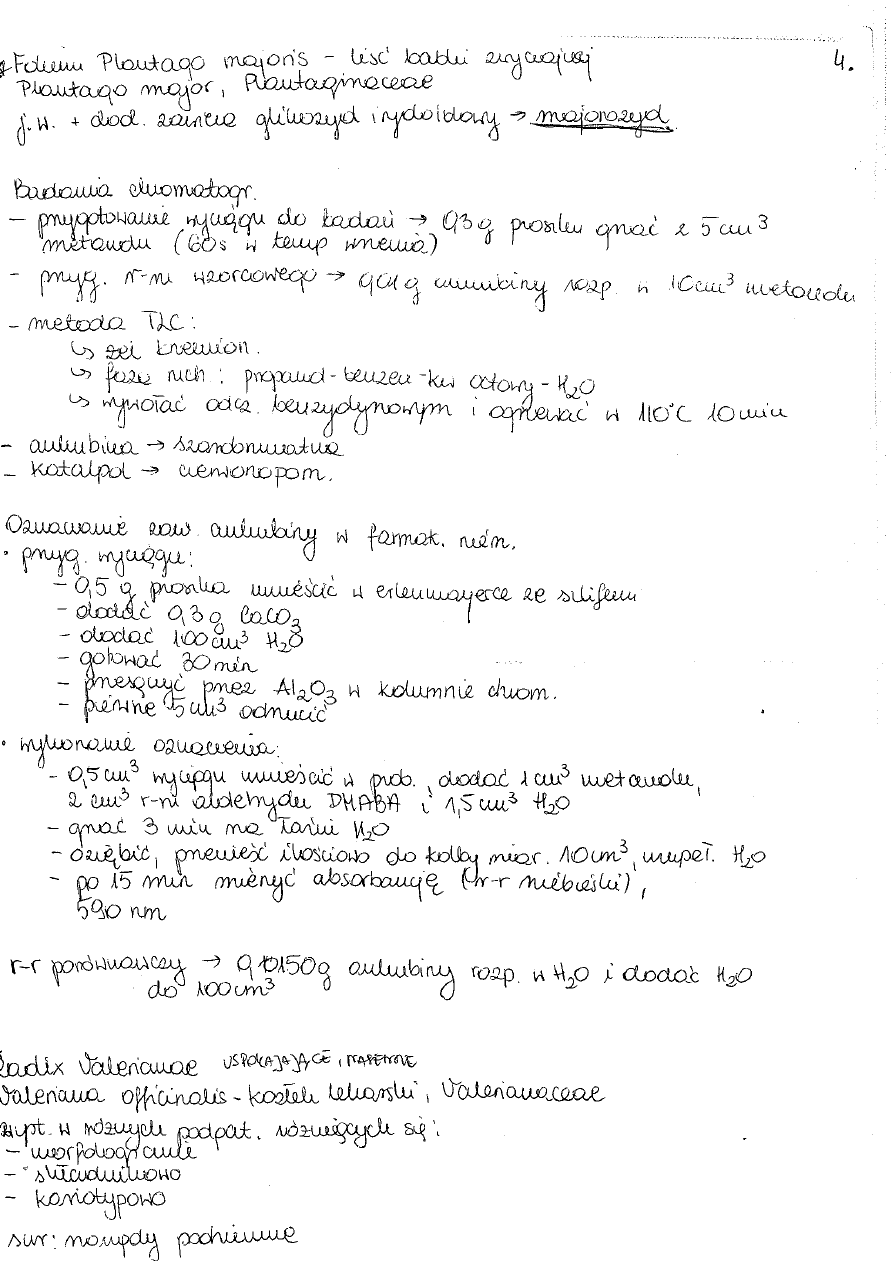 Folium Plantago majoris - liść babki zwyczajnej
4.
Plantago major, Plantaginaceae
j.w. + dod. zawiera glikozyd irydoidowy → majorozyd
Badania chromatogr.
- przygotowanie wyciągu do badań → 0,3 g proszku grzać z 5 cm³
metanolu (60s w temp wrzenia)
- przyg. r-ru wzorcowego → 0,01 g aukubiny rozp. w 10 cm³ metanolu
- metoda TLC:
↳ żel krzemion.
↳ faza ruch: propanol-benzen-kw octowy-H₂O
↳ wywołać odcz. benzydynowym i ogrzewać w 110°C 10 min
- aukubina → szarobrunatna
- katalpol → czerwonopom.
Oznaczanie zaw. aukubiny w farmak. niem.
• przyg. wyciągu:
- 0,5 g proszku umieścić w erlenmayerce ze szlifem
- dodać 0,3 g CaCO₃
- dodać 100 cm³ H₂O
- gotować 30 min
- przesączyć przez Al₂O₃ w kolumnie chrom.
- pierwsze 5 cm³ odrzucić
• wykonanie oznaczenia:
- 0,5 cm³ wyciągu umieścić w prob., dodać 1 cm³ metanolu,
2 cm³ r-ru aldehydu DMABA i 1,5 cm³ H₂O
- grzać 3 min na łaźni H₂O
- oziębić, przenieść ilościowo do kolby miar. 10 cm³, uzupeł. H₂O
- po 15 min mierzyć absorbancję (r-r niebieski),
590 nm
r-r porównawczy → 0,0150g aukubiny rozp. w H₂O i dodać H₂O
do 100 cm³
Radix Valerianae USPOKAJAJĄCE, NASENNE
Valeriana officinalis - kozłek lekarski, Valerianaceae
wyst. w różnych podgat. różniących się:
- morfologicznie
- składnikowo
- kariotypowo
sur: narządy podziemne